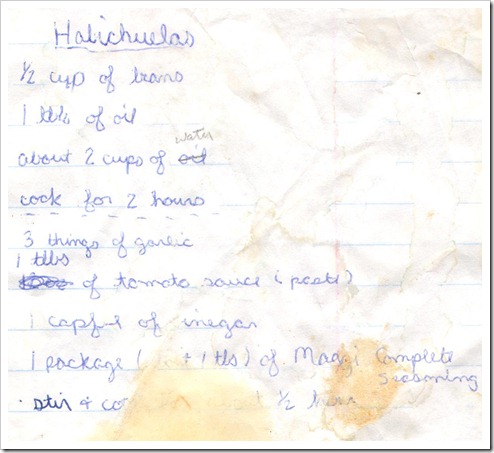 Habichuelas
1/2 cup of beans
1 tbls of oil
water
about 2 cups of oil
cook for 2 hours
3 things of garlic
1 tlbs
of tomato sauce (paste)
1 capful of vinegar
1 package ( + 1 tls) of Maggi Complete
seasoning
stir & co 1/2 hour